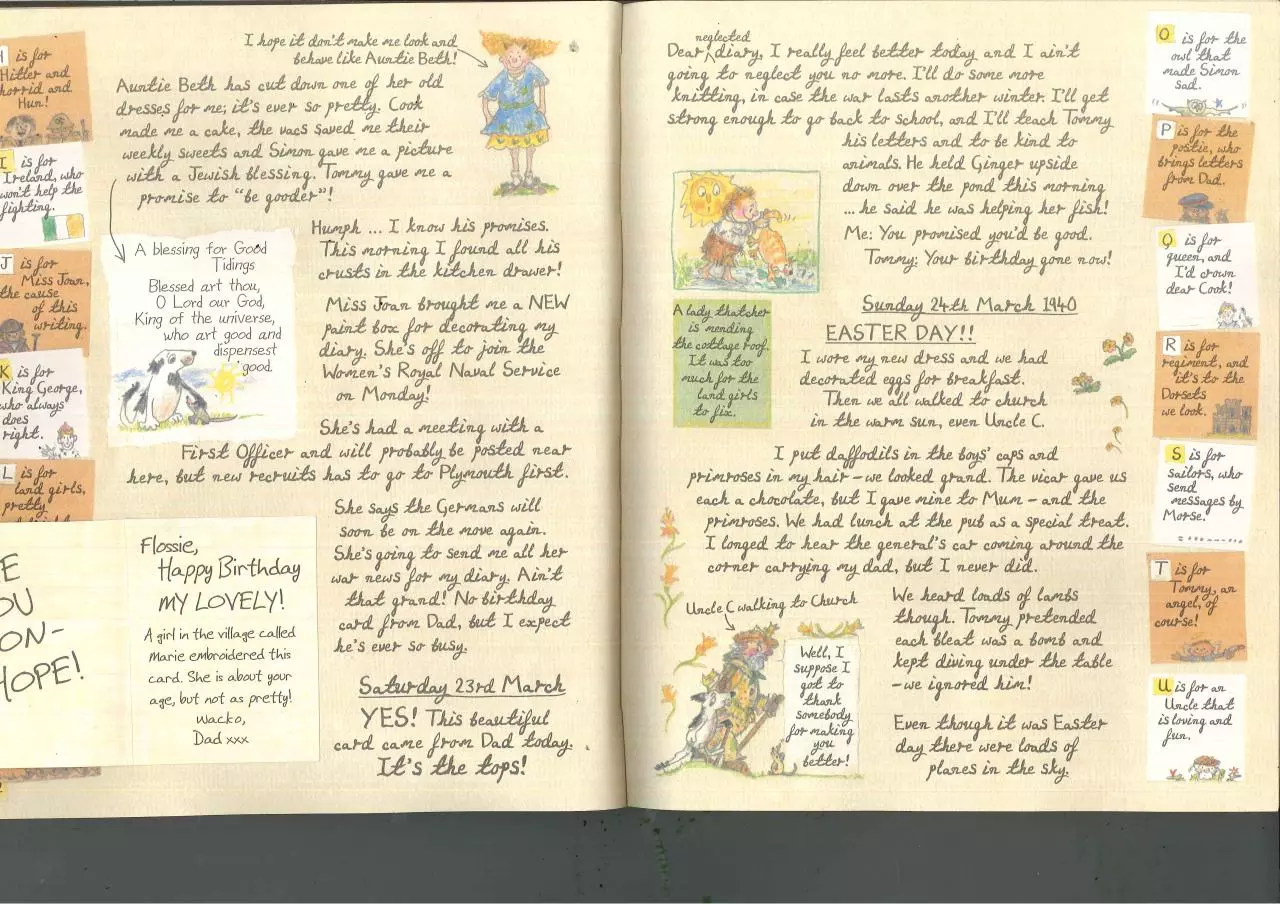 H is for
Hitler and
horrid and
Hun!
I is for
Ireland, who
won't help the
fighting.
J is for
Miss Joan,
the cause
of this
writing.
K is for
King George,
who always
does
right.
L is for
land girls,
pretty
I hope it don't make me look and
behave like Auntie Beth!
Auntie Beth has cut down one of her old
dresses for me; it's ever so pretty. Cook
made me a cake, the vacs saved me their
weekly sweets and Simon gave me a picture
with a Jewish blessing. Tommy gave me a
promise to "be gooder"!
A blessing for Good
Tidings
Blessed art thou,
O Lord our God,
King of the universe,
who art good and
dispensest
good.
Humph ... I know his promises.
This morning I found all his
crusts in the kitchen drawer!
Miss Joan brought me a NEW
paint box for decorating my
diary. She's off to join the
Women's Royal Naval Service
on Monday!
She's had a meeting with a
First Officer and will probably be posted near
here, but new recruits has to go to Plymouth first.
She says the Germans will
soon be on the move again.
She's going to send me all her
war news for my diary. Ain't
that grand! No birthday
card from Dad, but I expect
he's ever so busy.
Saturday 23rd March
YES! This beautiful
card came from Dad today.
It's the tops!
E
OU
ON-
HOPE!
Flossie,
Happy Birthday
MY LOVELY!
A girl in the village called
Marie embroidered this
card. She is about your
age, but not as pretty!
Wacko,
Dad xxx
2
neglected
Dear diary, I really feel better today and I ain't
going to neglect you no more. I'll do some more
knitting, in case the war lasts another winter. I'll get
strong enough to go back to school, and I'll teach Tommy
his letters and to be kind to
animals. He held Ginger upside
down over the pond this morning
... he said he was helping her fish!
Me: You promised you'd be good.
Tommy: Your birthday gone now!
A lady thatcher
is mending
the cottage roof.
It was too
much for the
land girls
to fix.
Sunday 24th March 1940
EASTER DAY!!
I wore my new dress and we had
decorated eggs for breakfast.
Then we all walked to church
in the warm sun, even Uncle C.
I put daffodils in the boys' caps and
primroses in my hair – we looked grand. The vicar gave us
each a chocolate, but I gave mine to Mum – and the
primroses. We had lunch at the pub as a special treat.
I longed to hear the general's car coming around the
corner carrying my dad, but I never did.
Uncle C walking to Church
Well, I
suppose I
got to
thank
somebody
for making
you
better!
We heard loads of lambs
though. Tommy pretended
each bleat was a bomb and
kept diving under the table
– we ignored him!
Even though it was Easter
day there were loads of
planes in the sky.
O is for the
owl that
made Simon
sad.
P is for the
postie, who
brings letters
from Dad.
Q is for
queen, and
I'd crown
dear Cook!
R is for
regiment, and
it's to the
Dorsets
we look.
S is for
sailors, who
send
messages by
Morse.
T is for
Tommy, an
angel, of
course!
U is for an
Uncle that
is loving and
fun.